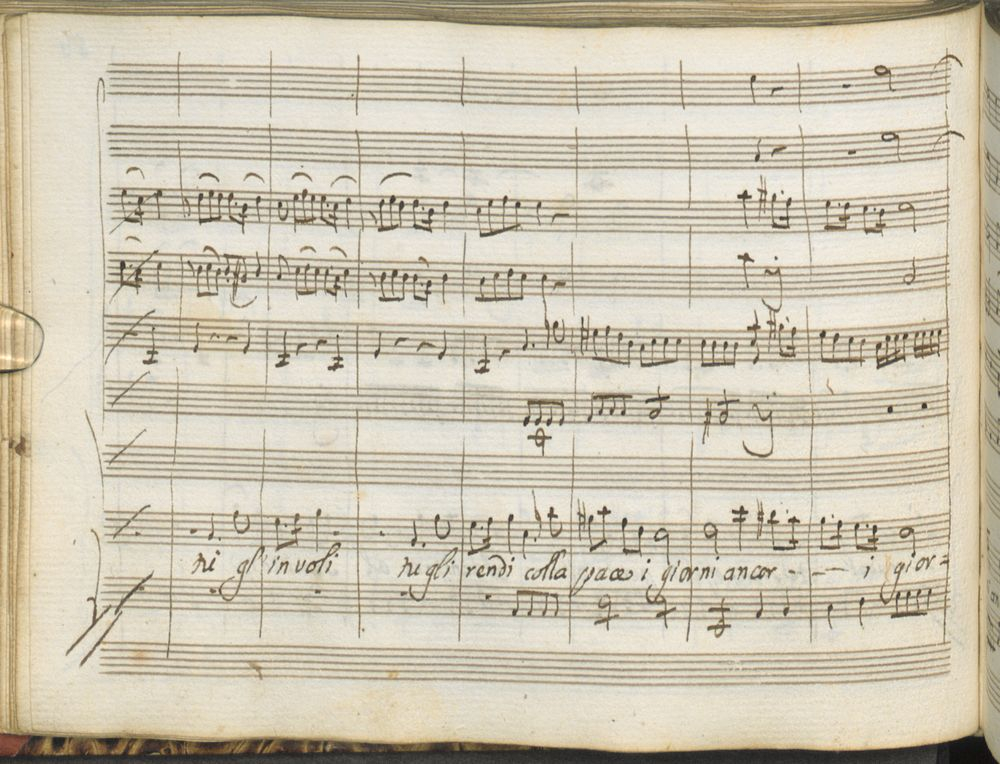 ni gl' involi ni gli rendi colla pace i giorni ancor - - - i gior=